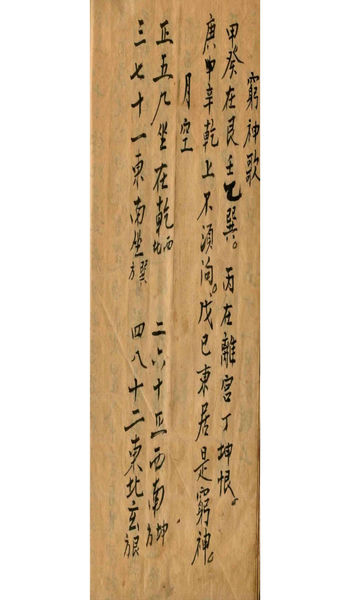 窮神歌
甲癸在艮壬乙巽。丙在離宮丁坤恨。
庚申辛乾上不須問。戊巳東居是窮神。
月空
正五九坐在乾西北 二六十正西南坤方
三七十一東南坐巽方 四八十二東北